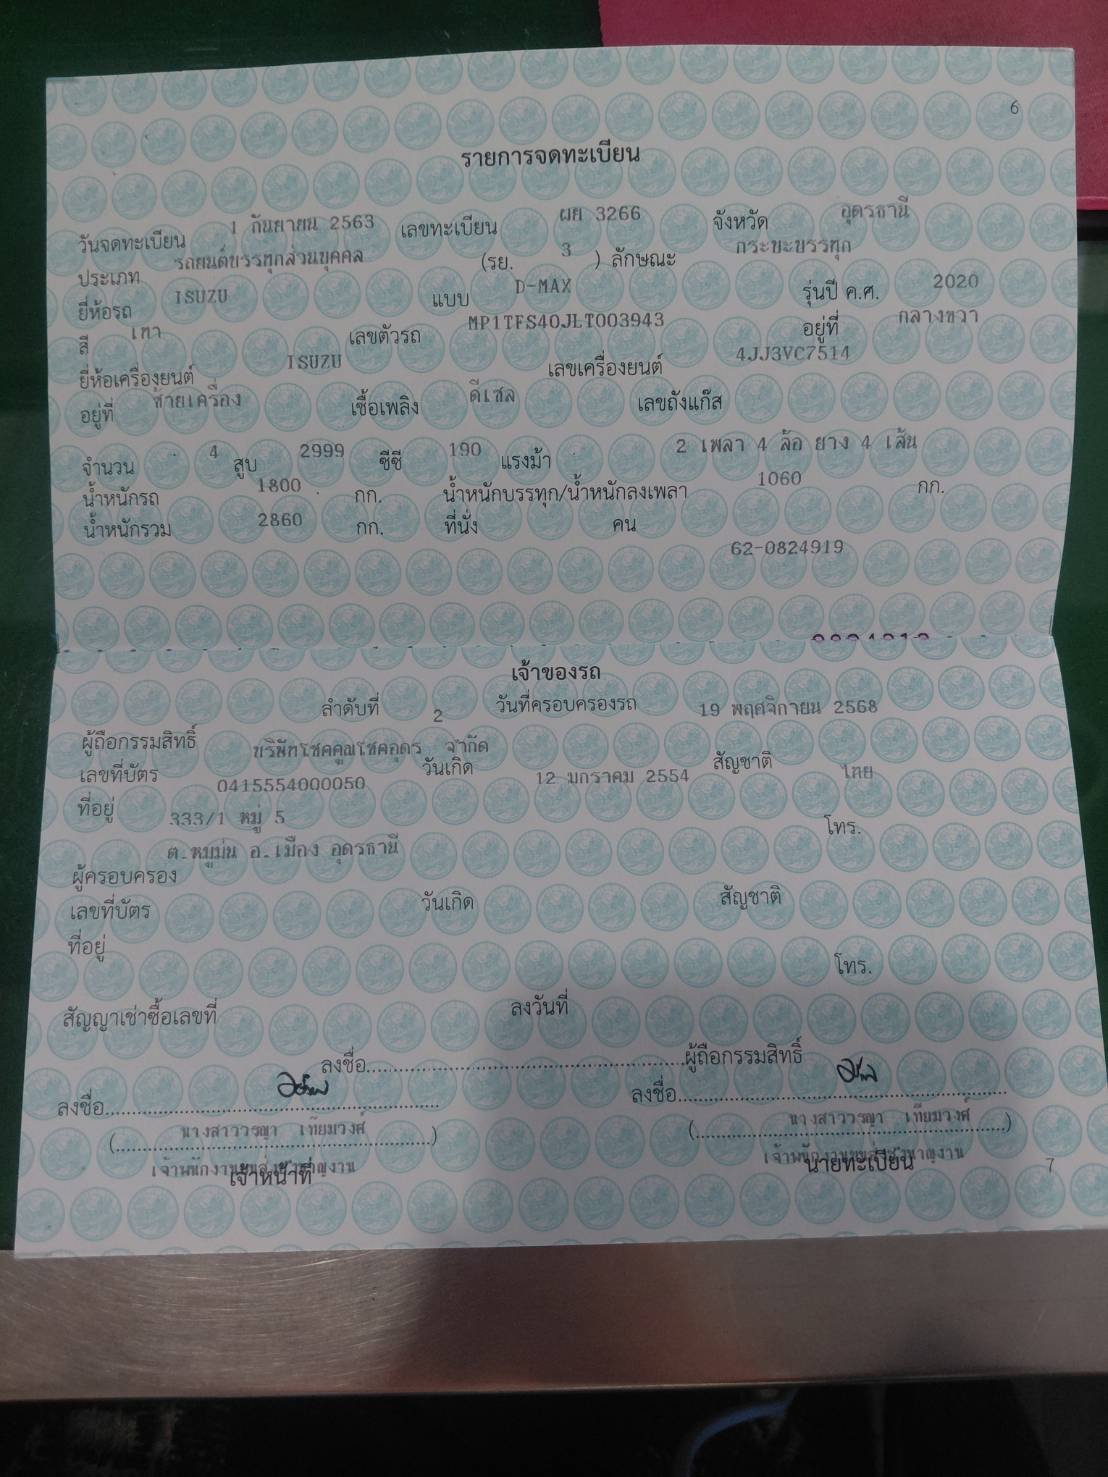 6
รายการจดทะเบียน
วันจดทะเบียน 1 กันยายน 2563 เลขทะเบียน ผย 3266 จังหวัด อุดรธานี
ประเภท รถยนต์บรรทุกส่วนบุคคล (รย. 3 ) ลักษณะ กระบะบรรทุก
ยี่ห้อรถ ISUZU แบบ D-MAX รุ่นปี ค.ศ. 2020
สี เทา เลขตัวรถ MP1TFS40JLT003943 อยู่ที่ กลางขวา
ยี่ห้อเครื่องยนต์ ISUZU เลขเครื่องยนต์ 4JJ3VC7514
อยู่ที่ ซ้ายเครื่อง เชื้อเพลิง ดีเซล เลขถังแก๊ส
จำนวน 4 สูบ 2999 ซีซี 190 แรงม้า 2 เพลา 4 ล้อ ยาง 4 เส้น
น้ำหนักรถ 1800 กก. น้ำหนักบรรทุก/น้ำหนักลงเพลา 1060 กก.
น้ำหนักรวม 2860 กก. ที่นั่ง คน
62-0824919
เจ้าของรถ
ลำดับที่ 2 วันที่ครอบครองรถ 19 พฤศจิกายน 2568
ผู้ถือกรรมสิทธิ์ บริษัทโชคคูณโชคอุดร จำกัด
เลขที่บัตร 0415554000050 วันเกิด 12 มกราคม 2554 สัญชาติ ไทย
ที่อยู่ 333/1 หมู่ 5 โทร.
ต.หมูม่น อ.เมือง อุดรธานี
ผู้ครอบครอง
เลขที่บัตร วันเกิด สัญชาติ
ที่อยู่ โทร.
สัญญาเช่าซื้อเลขที่ ลงวันที่
ลงชื่อ..........ผู้ถือกรรมสิทธิ์
ลงชื่อ.......... ลงชื่อ..........
(นางสาววรญา เทียมวงศ์) (นางสาววรญา เทียมวงศ์)
เจ้าพนักงานขนส่งชำนาญงาน เจ้าพนักงานขนส่งชำนาญงาน
เจ้าหน้าที่ นายทะเบียน
7